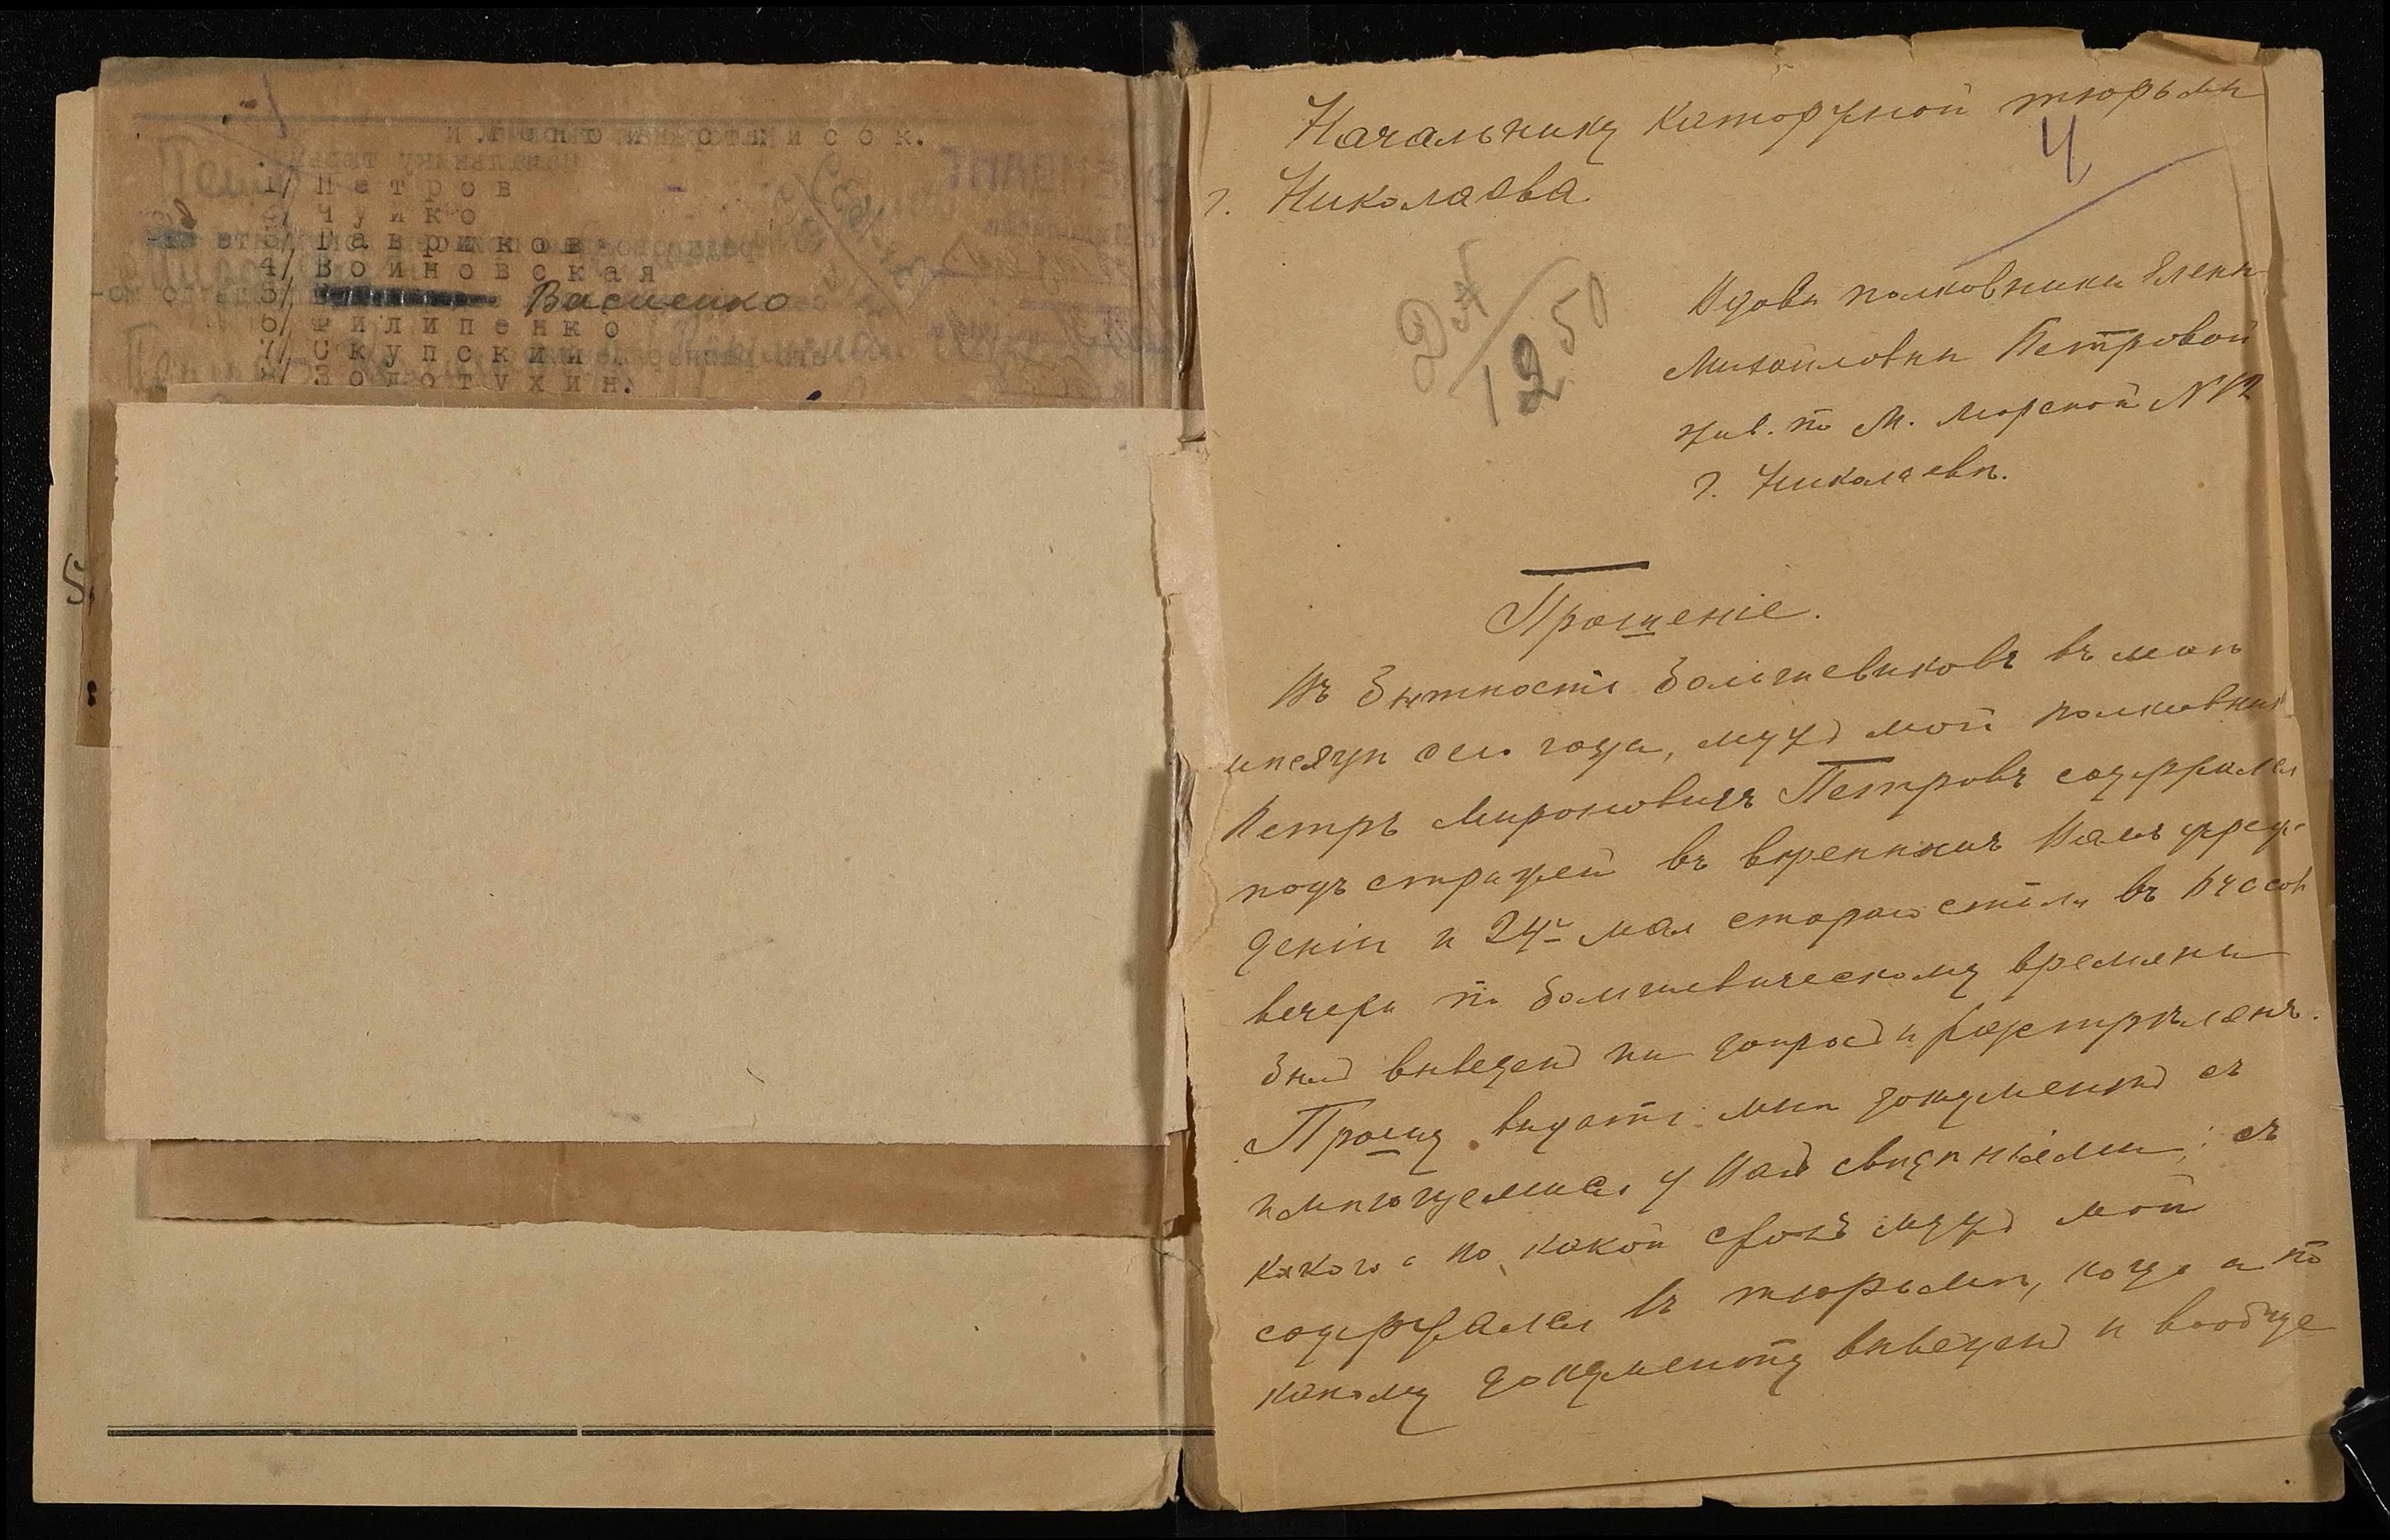 С п и с о к.
1/ П е т р о в
2/ Ч у й к о
3/ Г а в р и к о в
4/ В о й н о в с к а я
5/ Васиенко
6/ Ф и л и п е н к о
7/ С к у п с к и й
8/ З о л о т у х и н.
5.
Начальнику каторжной тюрьмы
4
г. Николаева.
1250
Вдовы полковника Елены
Михайловны Петровой
жив. по М. Морской N 12
г. Николаевъ.
Прошеніе.
Въ бытность большевиковъ въ маѣ
мѣсяцѣ сего года, мужъ мой полковникъ
Петръ Мироновичъ Петровъ содержался
подъ стражей въ ввѣренномъ Вамъ учреж-
деніи и 24го мая стараго стиля въ 6 часов
вечера по большевическому времени
былъ выведенъ на допросъ и разстрѣлянъ.
Прошу выдать мнѣ документъ съ
имѣющимися у Васъ свѣдѣніями: съ
какого и по какой срокъ мужъ мой
содержался въ тюрьмѣ, когда и по
какому документу выведенъ и вообще